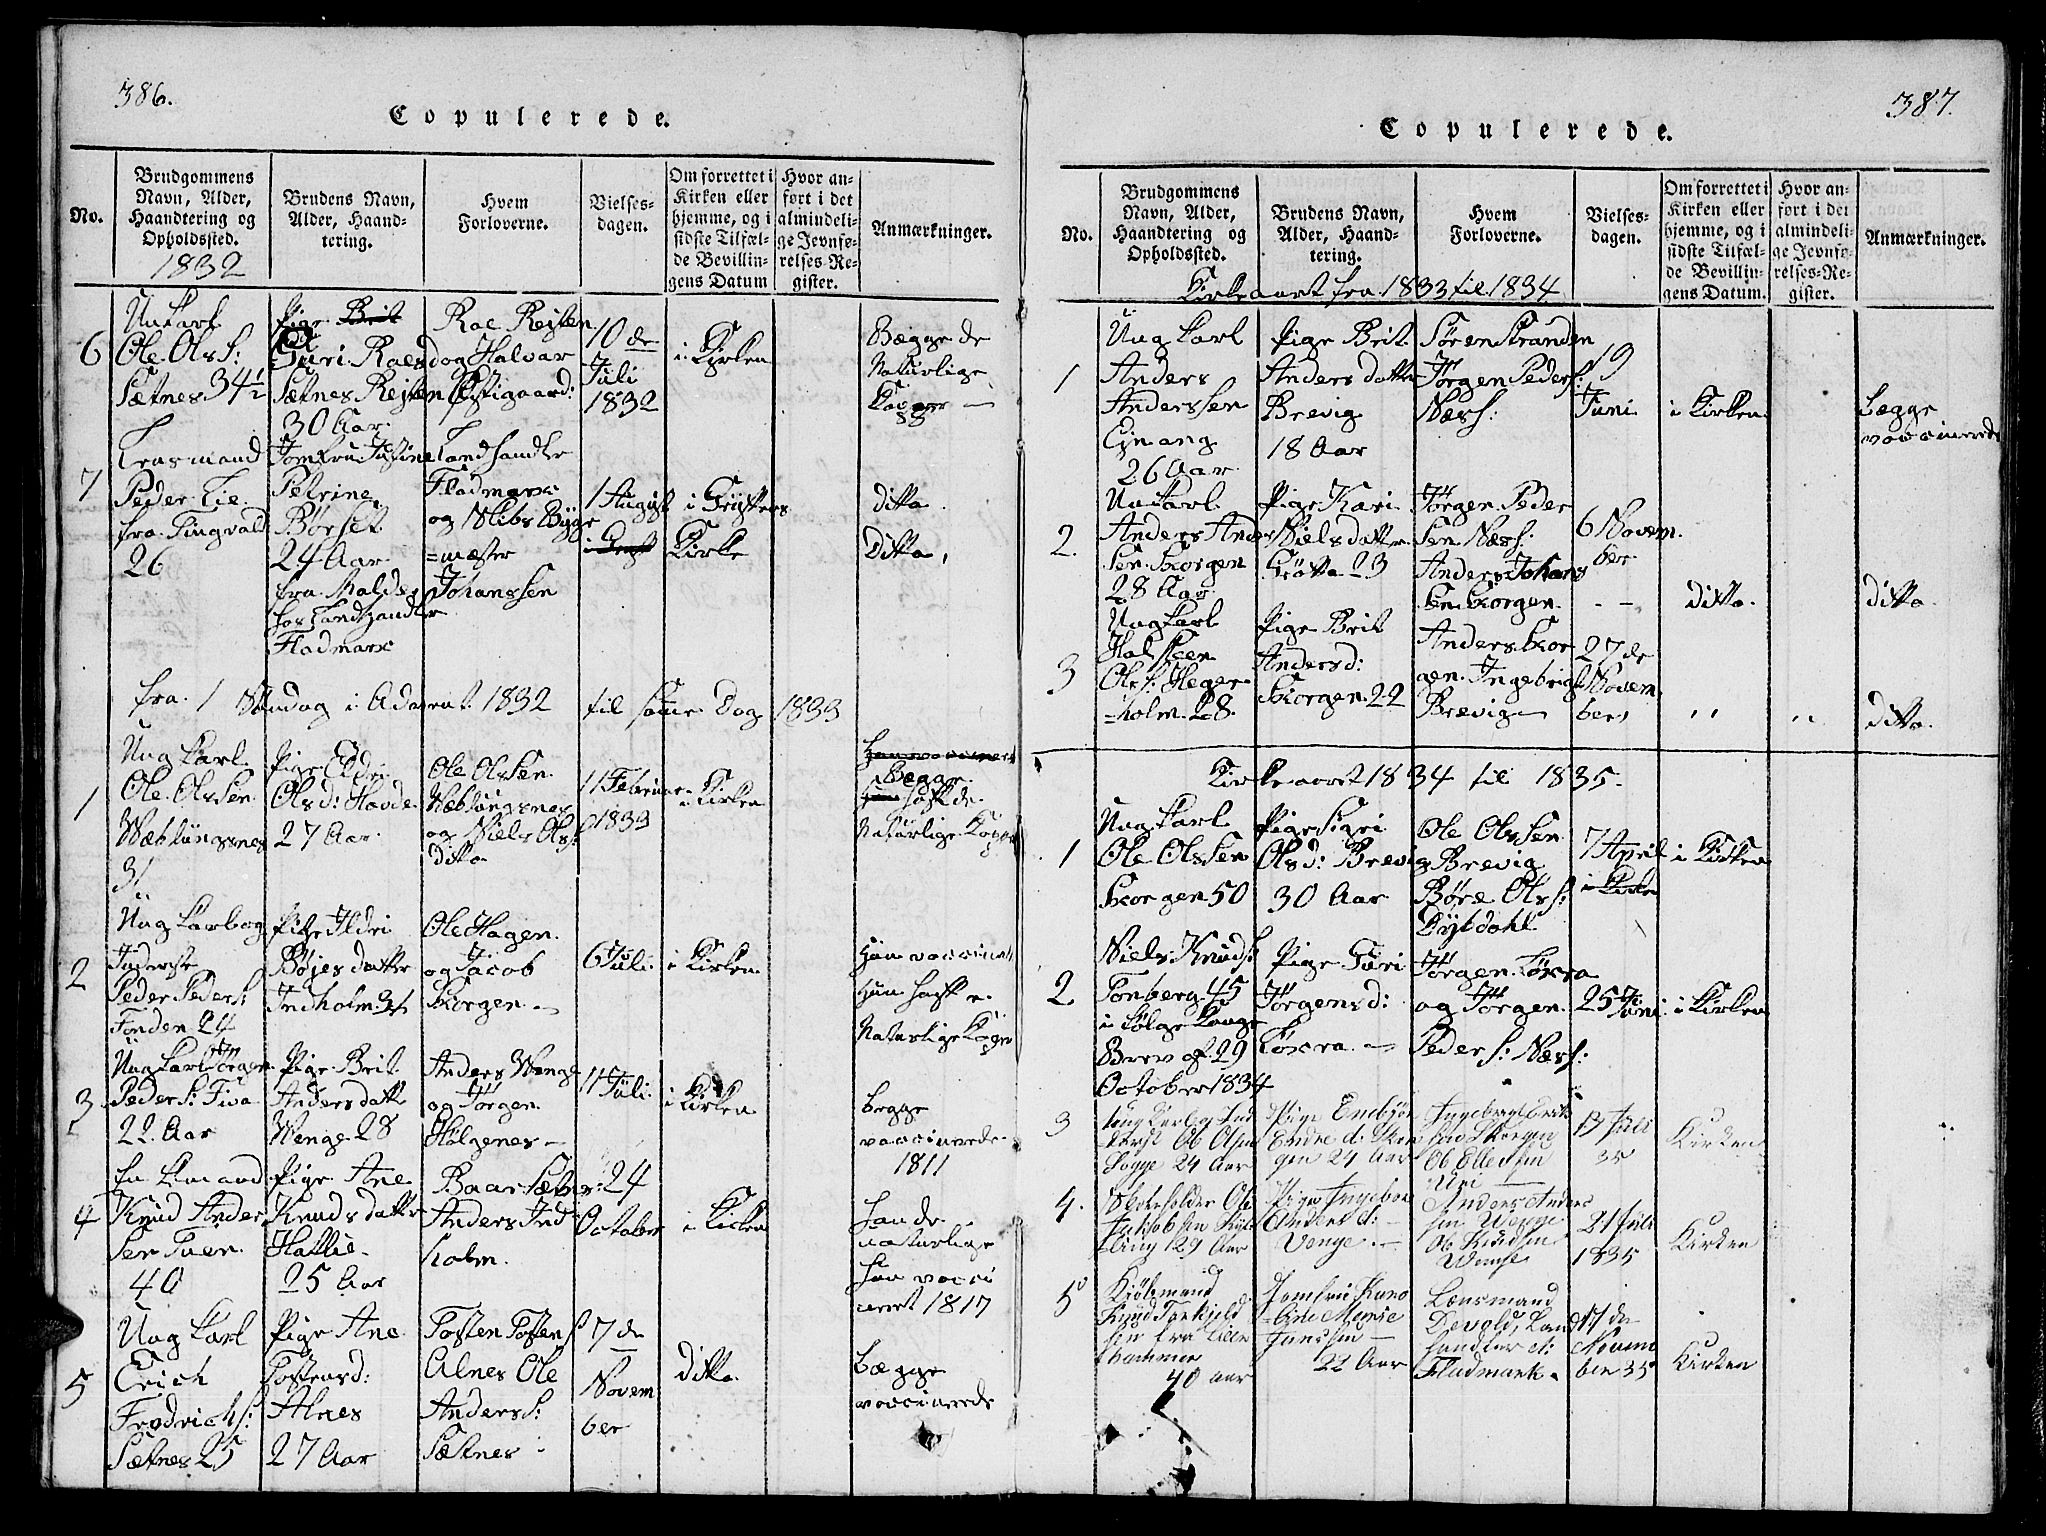 386.
Copulerede.
No.
Brudgommens
Navn, Alder,
Haandtering og
Opholdssted.
1832
Brudens Navn,
Alder, Haand-
tering.
Hvem
Forloverne.
Vielses-
dagen.
Om forrettet i
Kirken eller
hjemme, og i
sidste Tilfæl-
de Bevillin-
gens Datum
Hvor an-
ført i det
almindeli-
ge Jevnfø-
relses-Re-
gister.
Anmærkninger.
6
Ole Ols:
Sætnes 34½
Pige Brit
Guri Raesd
Sætnes Rejsten
30 Aar.
Roe Rejsten
og Halvar
10 de
Juli
1832
i Kirken
Bægge de
Naturlige
Kopper
7
Lensmand
Peder Lie
fra Tingvold
26
Jomfru Justine
Petrine
Børset
24 Aar
fra Molde
hos Landhandler
Fladmark
Landhandler
Fladmark
og Slibs Byge
=mæster
Johanssen
1 August
i Grytens
Kirke
ditto
Ditto,
fra 1 Søndag i Advent 1832 til samme Dag 1833
1
Ung Karl
Ole Olssen
Næblungsnes
31
Pige Eldri
Olsd: Hovde
27 Aar.
Ole Olssen
Næblungsnes
og Niels Ols:
ditto
11 Februar
1833
i Kirken
Bægge
haft de
Naturlige Kopper
2
Ung Karl og
Inderste
Peder Peders:
Tonden 24
Pige Ildri
Bøjes datter
Indholm 31
Ole Hagen
og Jacob
Skorgen
6 Juli
i Kirken
Han vaccineret
Hun haft e
Naturlige Kopper
3
Ung Karl Jørgen
Peders: Fiva
22 Aar
Pige Brit
Andersdatter
Wenge 28
Anders Wenge
og Jørgen
Halgenes
11 Juli
i Kirken
begge
vaccinerede
1811
4
Enkemand
Knud Ander
sen Tuen
40
Pige Ane
Knudsdatter
25 Aar
Baar Sætnes:
Anders Ind
holm.
24
October
i Kirken
Han de
naturlige
Hun vacci
neret 1817
5
Ung Karl
Erich
Fredrichs:
Sætnes 25
Pige Ane
Tostensd:
Alnes
27 Aar
Tosten Tostens
Alnes Ole
Anders:
Sætnes
7 de
Novem
ber
ditto
Bægge
vaccinerede
387.
Copulerede.
No.
Brudgommens
Navn, Alder,
Haandtering og
Opholdssted.
Brudens Navn,
Alder, Haand-
tering.
Hvem
Forloverne.
Vielses-
dagen.
Om forrettet i
Kirken eller
hjemme, og i
sidste Tilfæl-
de Bevillin-
gens Datum.
Hvor an-
ført i det
almindeli-
ge Jevnfø-
relses-Re-
gister.
Anmærkninger.
Kirkeaaret fra 1833 til 1834
1
Ung Karl
Anders
Anderssen
Ejnang
26 Aar.
Pige Brit
Anders datter
Brevig
18 Aar
Søren Stranden
Jørgen Peders:
Næss:
19
Juni
i Kirken
bægge
vaccinerede
2.
Ung Karl
Anders Ander
sen Skorgen
28 Aar.
Pige Kari
Nielsdatter
Grøtta 23
Jørgen Peder
sen Næss:
Anders Johans
sen Skorgen.
6 Novem
ber
ditto.
ditto.
3
Ung Karl
Halsteen
Ols: Heger
=holm. 28.
Pige Brit
Andersd:
Skorgen 22
Anders Skor
gen. Ingebrigt
Brevig
27 de
Novem
ber
"
"
ditto.
Kirkeaaret 1834 til 1835.
1
Ung Karl
Ole Olssen
Skorgen 50
Pige Sigri
Olsd: Brevig
30 Aar
Ole Olssen
Brevig
Børe Ols:
Dybdahl
7 April
i Kirken
i Kirken
2
Niels Knuds:
Tonberg 45
i følge Konge
Brev af 29
October 1834
Pige Turi
Jørgensd:
Loxra
Jørgen Loxra
og Jørgen
Peders: Næss:
25 Juni
i Kirken
3
Ungkarl og Ind
derst Ole Olsen
Sogge 24 Aar
Pige Embjør
Endre d: Skor
gen 24 Aar
Ingebrigt Erik
sen Skorgen
Ole Ellevsen
Uri
13 Juli
35
Kirken
4.
Jakobsen
29 Aar
Pige Ingebor
Anders d:
Venge.
Anders Anders
sen Wenge
Ole Knudsen
Wenge
21 Juli
1835
Kirken
5
Kjøbmand
Knud Torkjeld
sen fra Chri
40 aar
Jomfru Karo
line Marie
Jenssen
22 Aar
Lænsmand
Devold, Land
handler
Fladmark.
17 de
Novem
ber 35
Kirken